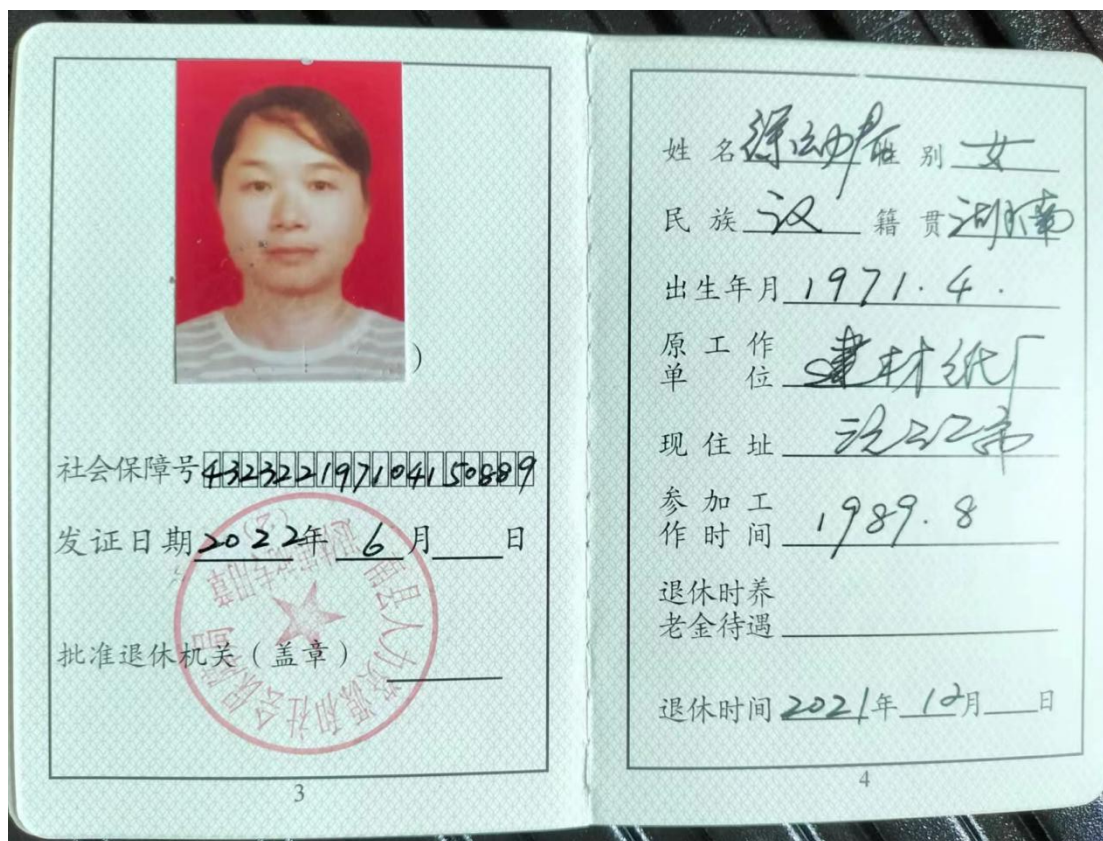 社会保障号432322197104150889
发证日期2022年6月 日
批准退休机关(盖章)
3
姓 名 徐 性 别 女
民 族 汉 籍 贯 湖南
出生年月 1971.4.
原工作单位 建材纸厂
现住址 沅江市
参加工作时间 1989.8
退休时养老金待遇
退休时间2021年12月 日
4
人力资源和社会保障局